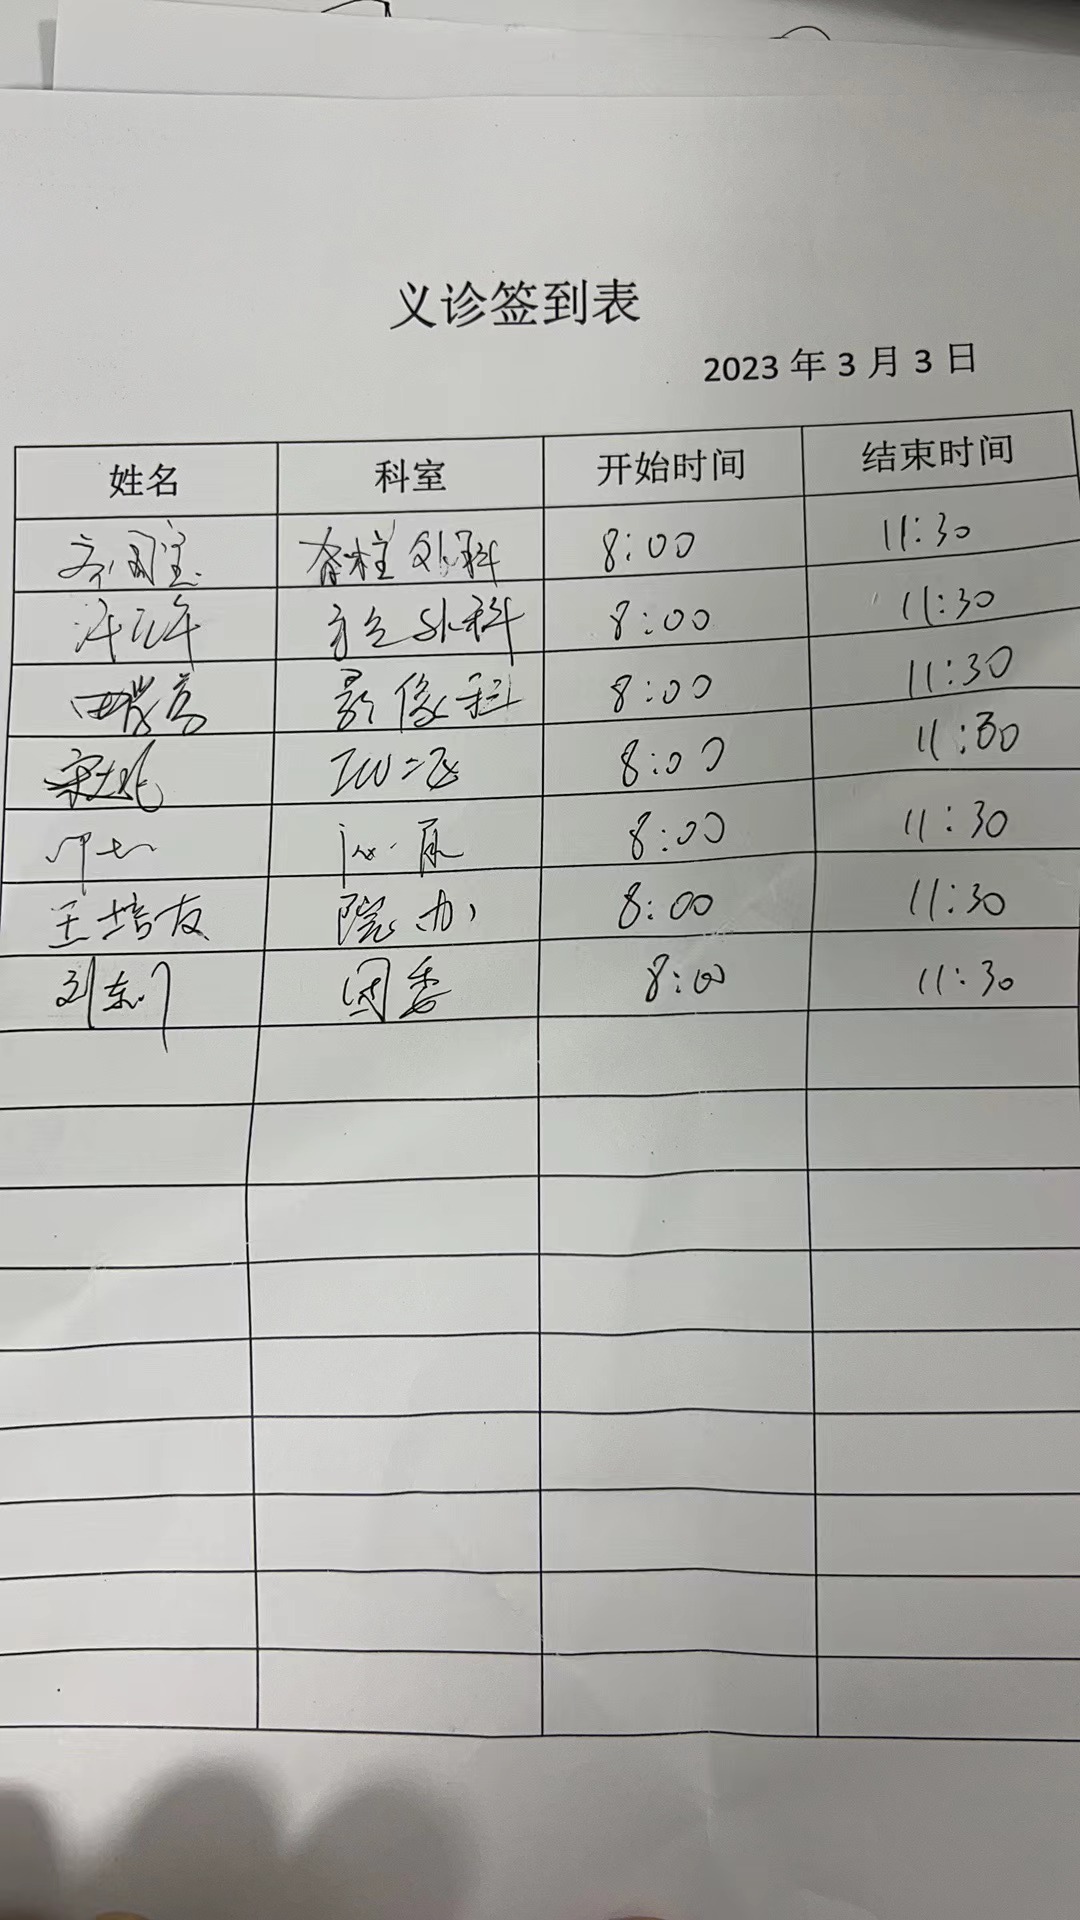 义诊签到表
2023 年 3 月 3 日
姓名 科室 开始时间 结束时间
齐国宝 脊柱外科 8:00 11:30
外科 8:00 11:30
影像科 8:00 11:30
8:00 11:30
泌尿 8:00 11:30
王培友 院办 8:00 11:30
刘东 团委 8:00 11:30